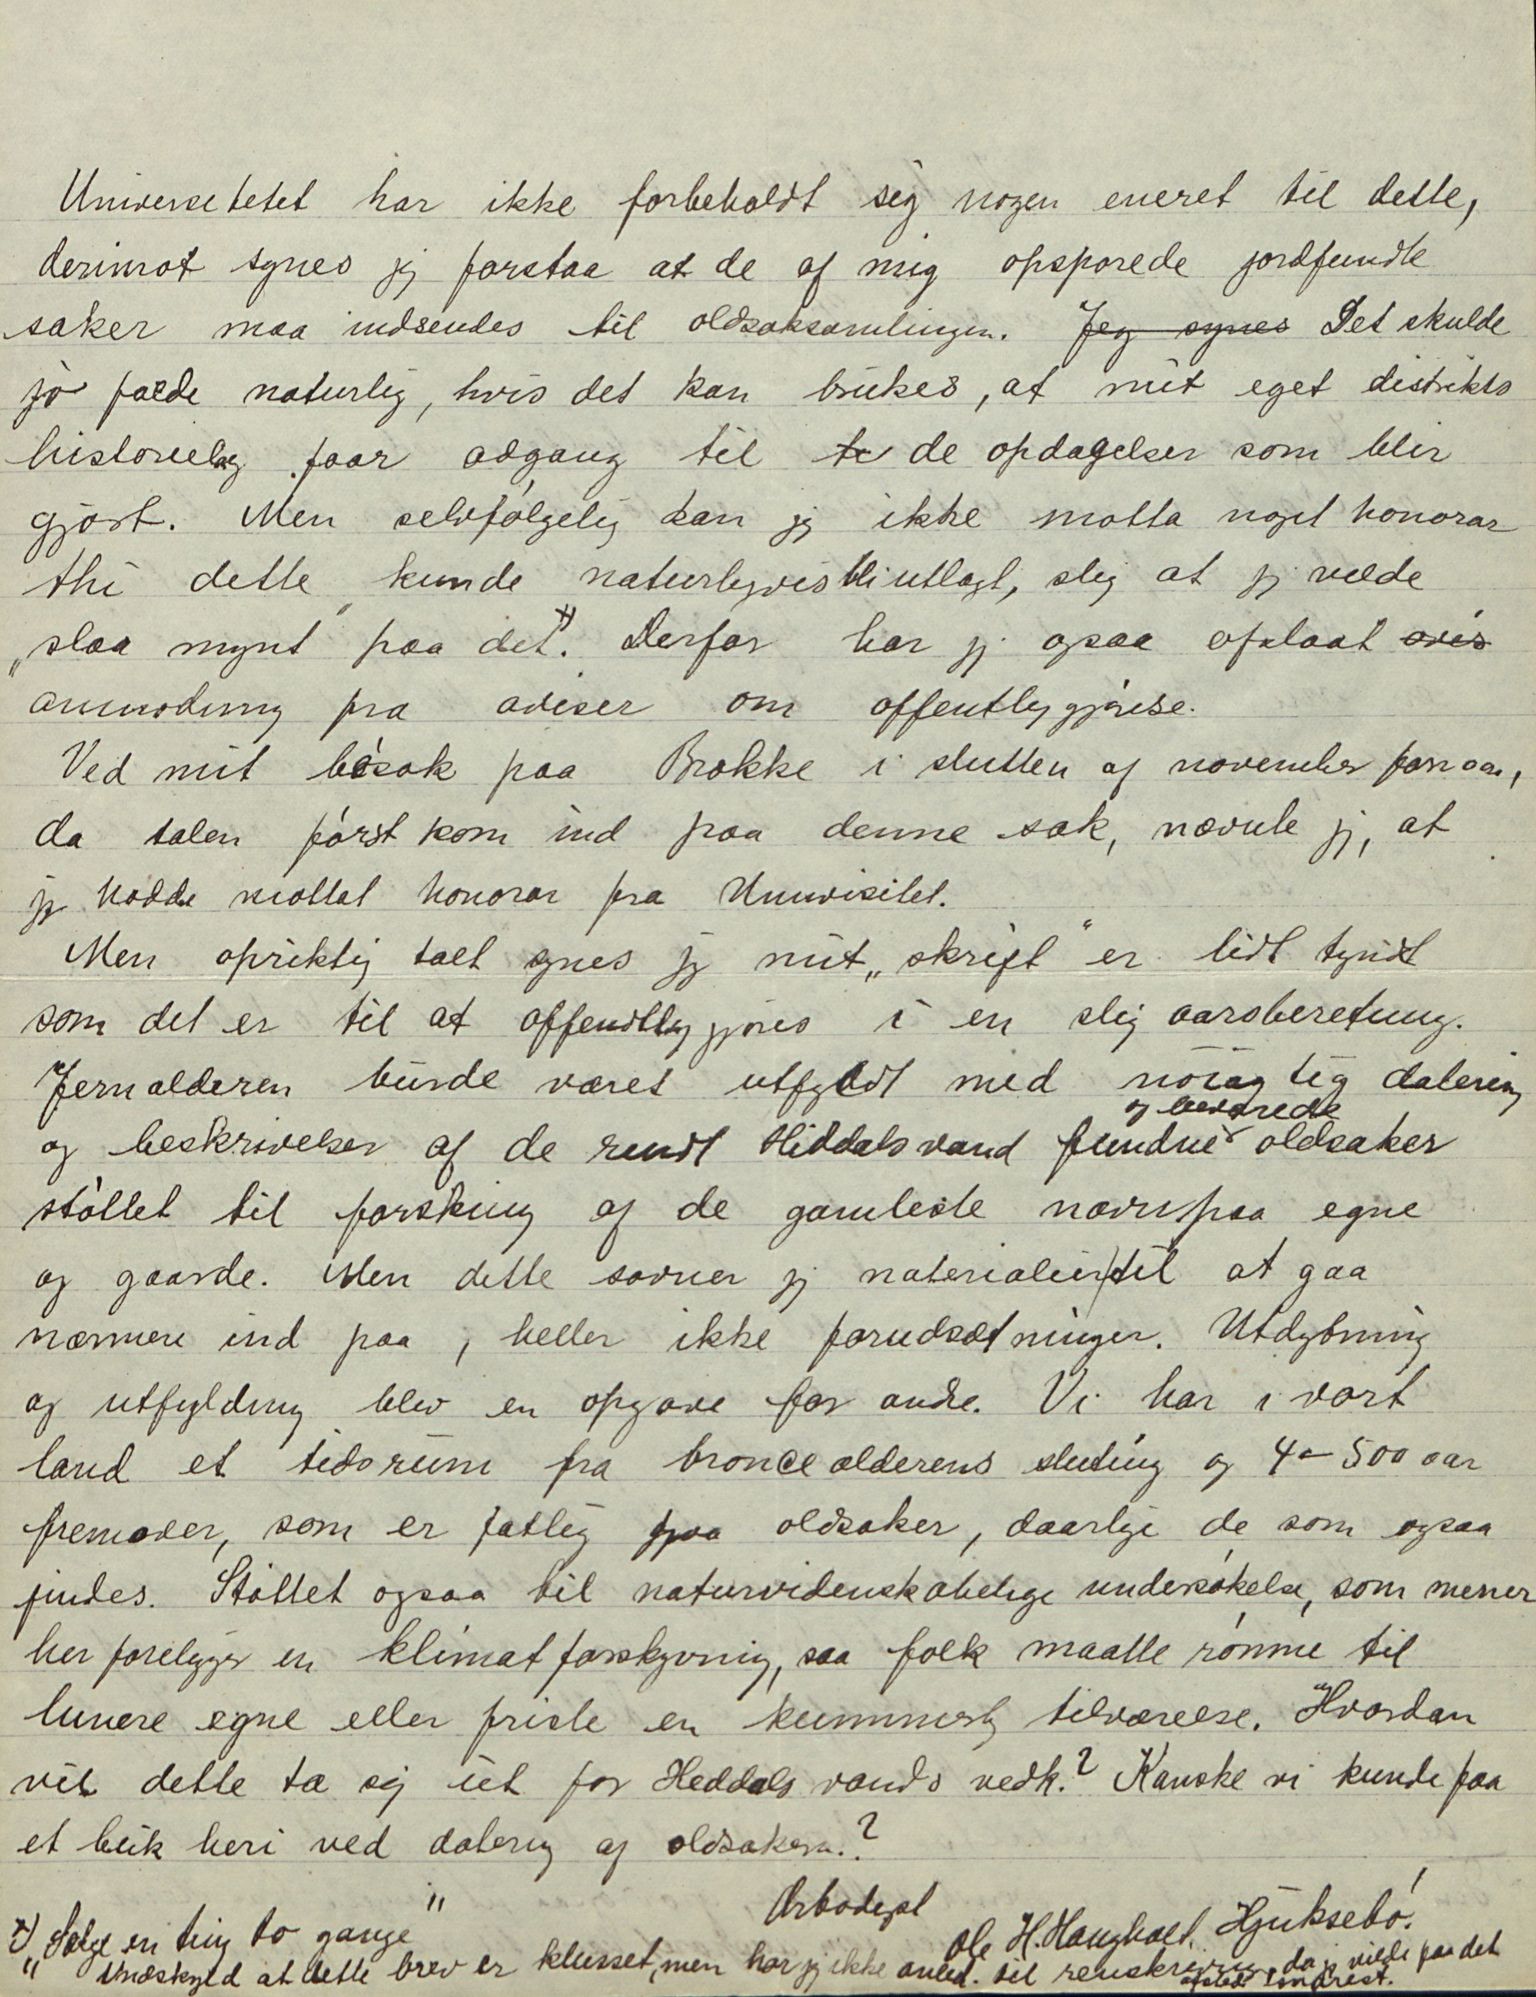 Universetetet har ikke forbeholdt sig nogen eneret til dette,
derimot synes jeg forstaa at de af mig opsporede jordfundte
saker maa indsendes til oldsaksamlingen. Jeg synes Det skulde
jo falde naturlig, hvis det kan brukes, at mit eget distrikts
historielag faar adgang til te de opdagelser som blir
gjort. Men selvfølgelig kan jeg ikke motta noget honorar
thi dette kunde naturligvis bli utlagt, slig at jeg vilde
„slaa mynt" paa det x). Derfor har jeg ogsaa afslaat avis
anmodning fra aviser om offentliggjørelse.
Ved mit besøk paa Brokke i slutten af november forr. aar,
da talen først kom ind paa denne sak, nævnte jeg, at
jeg hadde mottat honorar fra Universitet.
Men opriktig talt synes jeg mit „skrift" er lidt tyndt
som det er til at offendtliggjøres i en slig aarsberetning.
Jernalderen burde været utfyldt med nøiagtig datering
og beskrivelser af de rundt Hiddalsvand fundne og bevarede oldsaker
støttet til forskning af de gamleste navne paa egne
og gaarde. Men dette savner jeg materialier til at gaa
nærmere ind paa, heller ikke forudsætninger. Utdybning
og utfylding blev en opgave for andre. Vi har i vort
land et tidsrum fra broncealderens slutning og 4-500 aar
fremover, som er fatlig paa oldsaker, daarlige de som ogsaa
findes. Støttet ogsaa til naturvidenskabelige undersøkelse, som mener
her foreligger en klimatforskyvning, saa folk maatte rømme til
lunere egne eller friste en kummerlig tilværelse. Hvordan
vil dette ta sig ut for Heddalsvands vedk.? Kanske vi kunde faa
et blik heri ved datering af oldsakern.?
Ærbødigst
Ole H. Haugholt, Hjuksebø!
x) „Sælge en ting to gange"
Undskyld at dette brev er klusset, men har jeg ikke anled. til renskrivning, da jeg vilde faa det
afsted snarest.